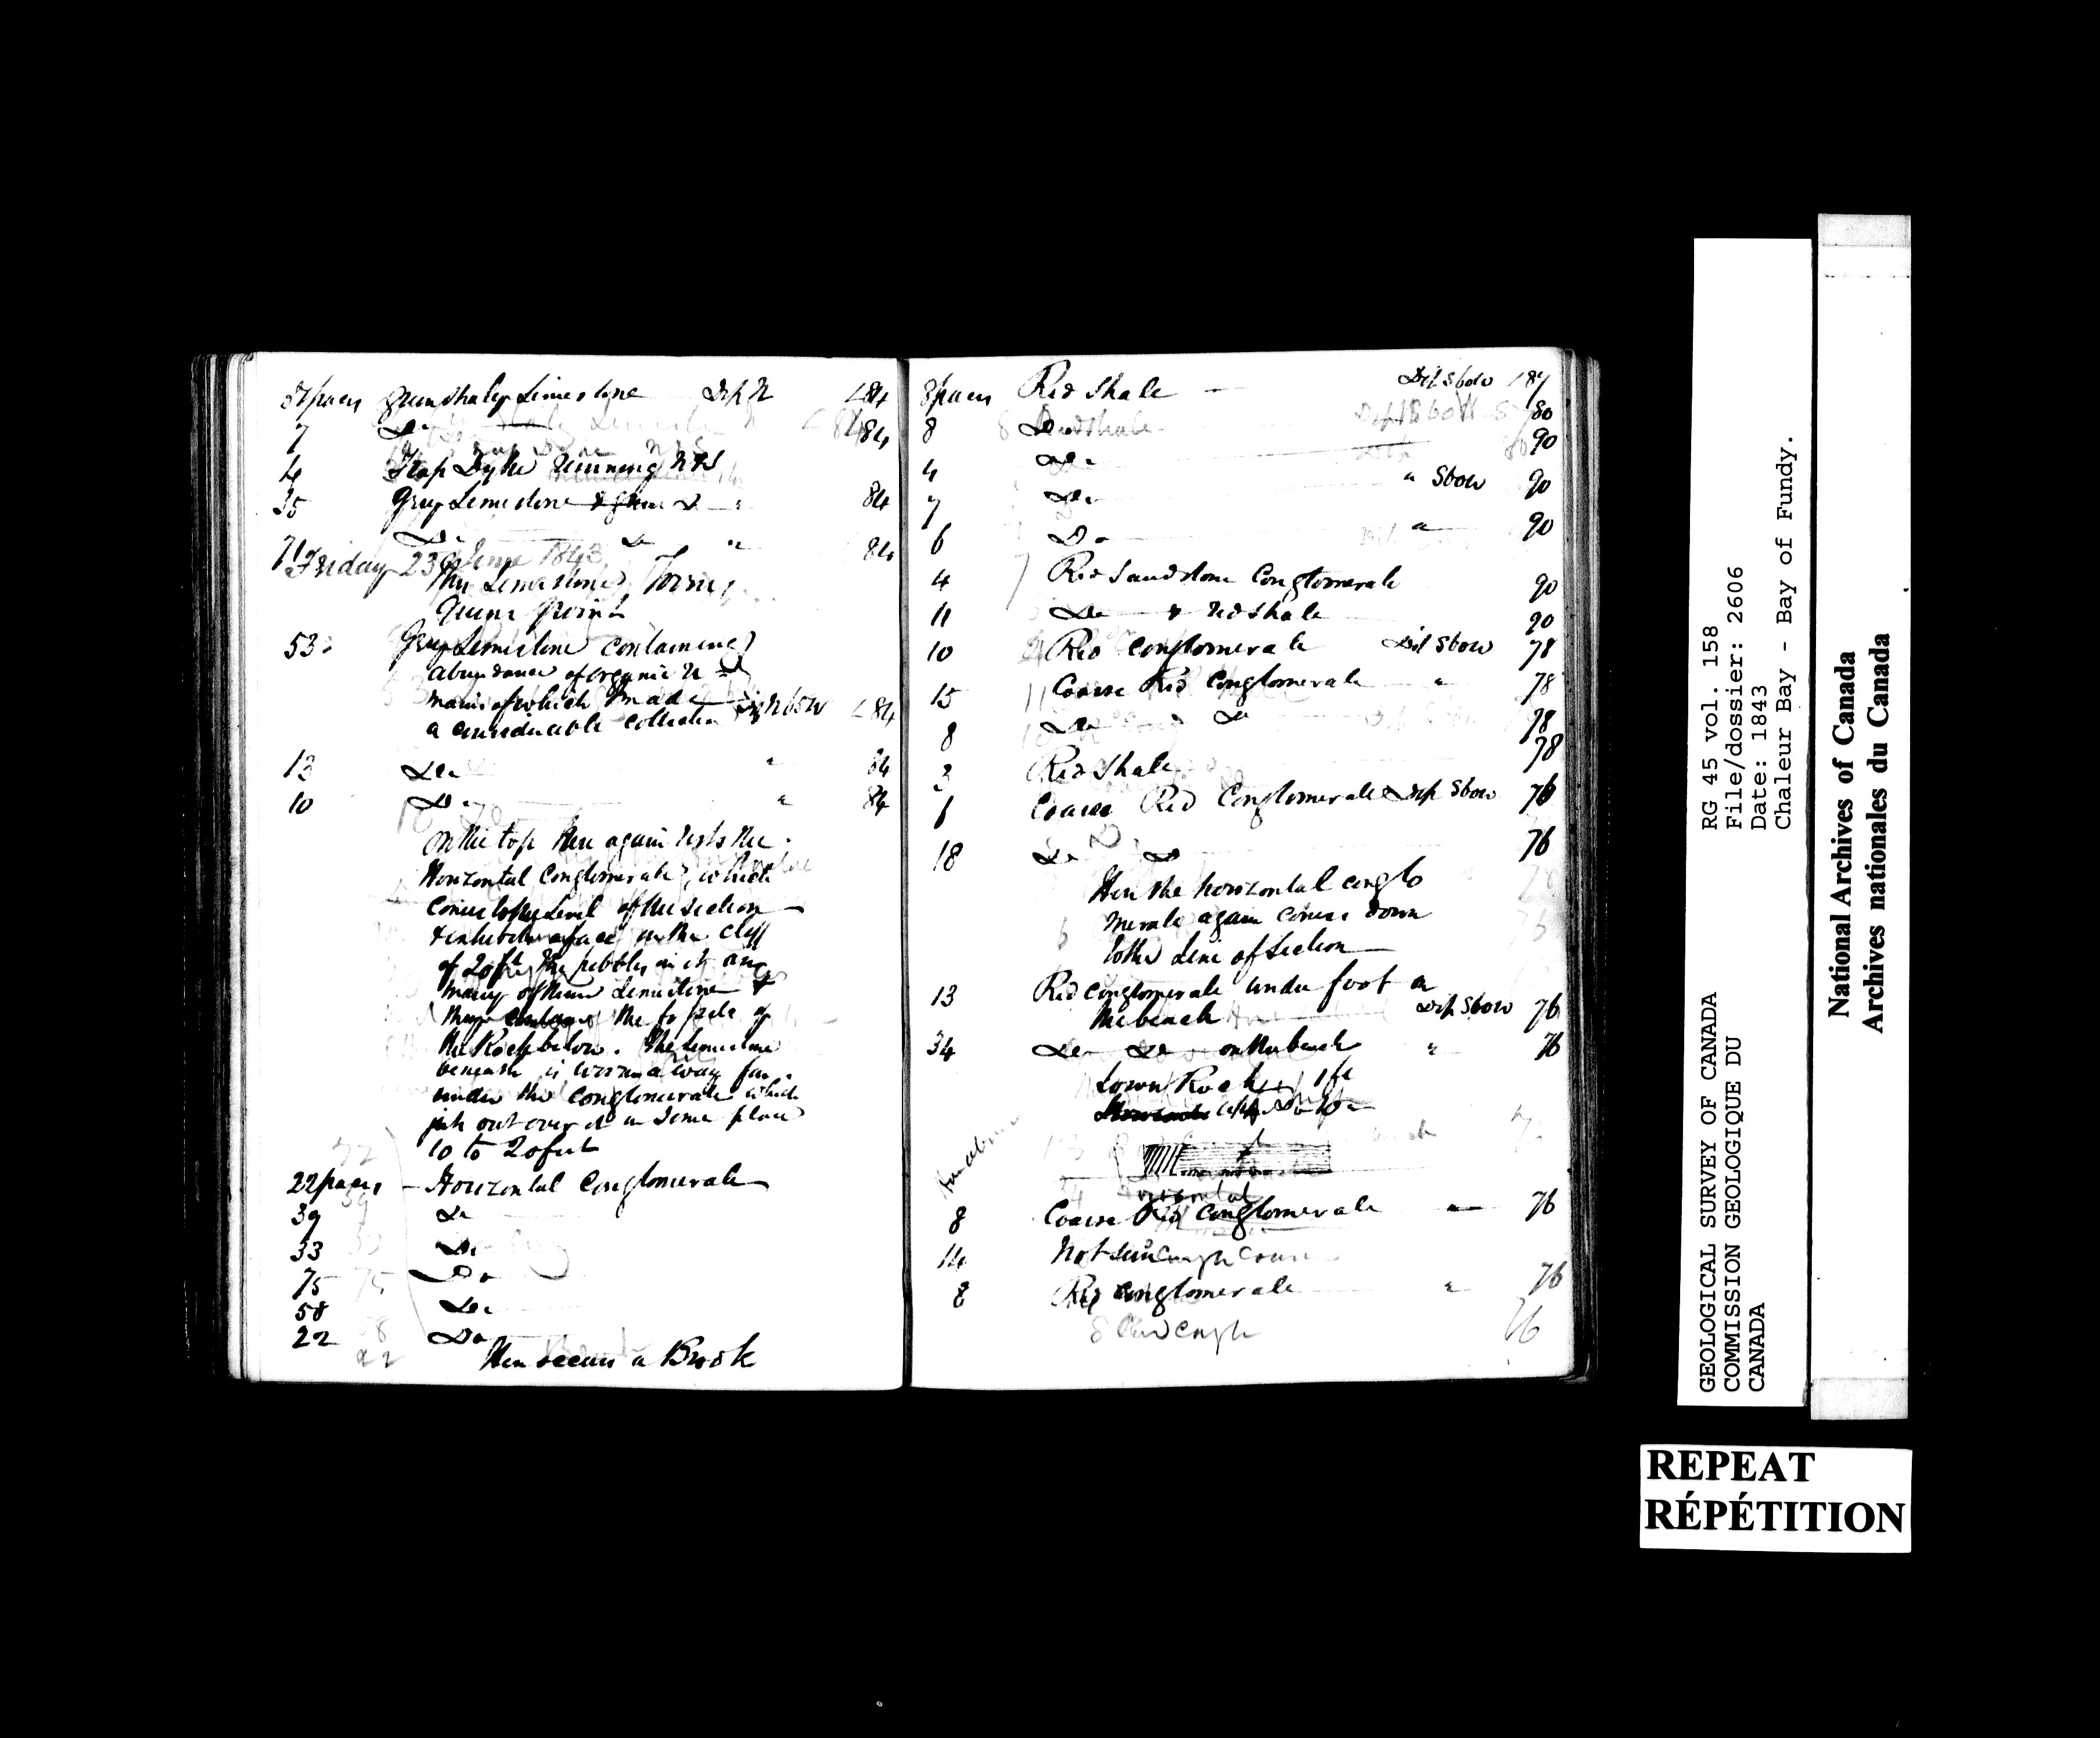 57 paces Green shaly Limestone Dip N <84
7 Do 84
4 Trap Dyke running N & S
35 Grey Limestone & green Do " 84
71 Do Do " 84
Friday 23 June 1843
This Limestone forms
Point
53 Grey Limestone containing
abundance of organic re
mains of which I made Dip N 65 W <84
a considerable collection
13 Do " 84
10 Do " 84
On the top here again rests the
Horizontal Conglomerate, which
comes to the Level of the section
& exhibits a face in the cliff
of 20 ft. The pebbles in it are
many of them Limestone &
they contain the fossils of
the Rock below. The Limestone
beneath is worn away far
under the Conglomerate which
juts out over it in some places
10 to 20 feet
22 paces - Horizontal Conglomerate
39 Do
33 Do
75 Do
58 Do
22 Do
Here occurs a Brook
8 paces Red Shale Dip S 60 W <87
8 Do 80
4 Do 90
7 Do " S 60 W 90
6 Do " 90
4 Red Sandstone Conglomerate 90
11 Do & red shale 90
10 Red Conglomerate Dip S 60 W 78
15 Coarse Red Conglomerate " 78
8 Do Do 78
3 Red Shale 78
6 Coarse Red Conglomerate Dip S 60 W 76
18 Do Do 76
Here the horizontal conglo
merate again comes down
to the Line of Section
13 Red conglomerate under foot on
the beach Dip S 60 W 76
34 Do Do on the beach " 76
Town Rock
Horizontal
8 Coarse Red Conglomerate " 76
14 Not seen
8 Red Conglomerate " 76
8 Red Congle 76
RG 45 vol. 158
File/dossier: 2606
Date: 1843
Chaleur Bay - Bay of Fundy.
GEOLOGICAL SURVEY OF CANADA
COMMISSION GEOLOGIQUE DU
CANADA
National Archives of Canada
Archives nationales du Canada
REPEAT
RÉPÉTITION